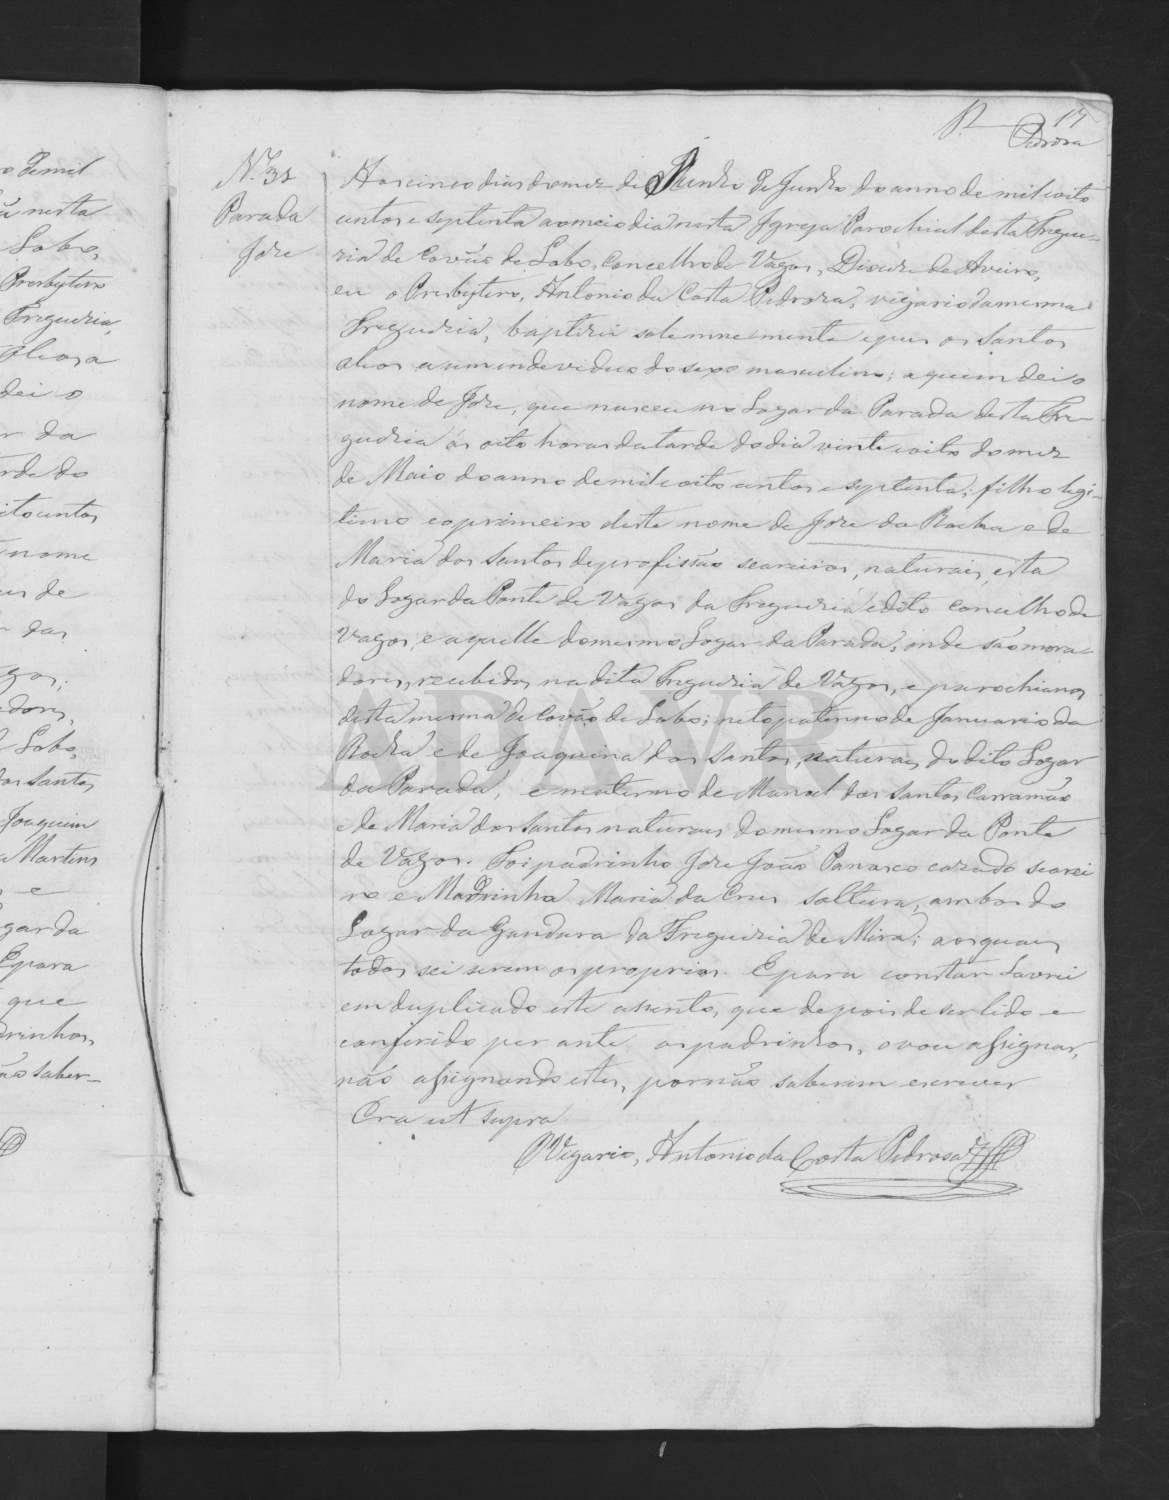 17
Pedrosa
Nº 32
Parada
Joze
Aos cinco dias do mez de Junho de Junho do anno de mil oito
centos e septenta ao meio dia nesta Igreja Parochial desta Fregue-
zia de Covão do Lobo, Concelho de Vagos, Diocese de Aveiro,
eu o Presbytero, Antonio da Costa Pedroza, vigario da mesma
Freguezia, baptizei solemnemente e pus os Santos
oleos a um individuo do sexo masculino; a quem dei o
nome de Joze, que nasceu no Logar da Parada desta Fre-
guezia ás oito horas da tarde do dia vinte e oito do mez
de Maio do anno de mil e oito centos e septenta; filho legi-
timo e o primeiro deste nome de Joze da Rocha e de
Maria dos Santos de profissão seareiros, naturais, esta
do Logar da Ponte de Vagos da Freguezia e dito concelho de
Vagos, e aquelle do mesmo Logar da Parada, onde são mora-
dores, recebidos na dita Freguezia de Vagos, e parochianos
desta mesma de Covão do Lobo; neto paterno de Januario da
Rocha e de Joaquina dos Santos, naturaes do dito Logar
da Parada, e materno de Manoel dos Santos Carramão
e de Maria dos Santos naturaes do mesmo Logar da Ponte
de Vagos. Foi padrinho Joze João Panasco cazado searei
ro e Madrinha Maria da Crus solteira, ambos do
Logar da Gandara da Freguezia de Mira; aos quaes
todos sei serem os proprios. E para constar lavrei
em duplicado este assento, que depois de ser lido e
conferido perante os padrinhos, o vou assignar,
não assignando estes, por não saberem escrever
Era ut supra
O Vigario, Antonio da Costa Pedrosa
ADAVR